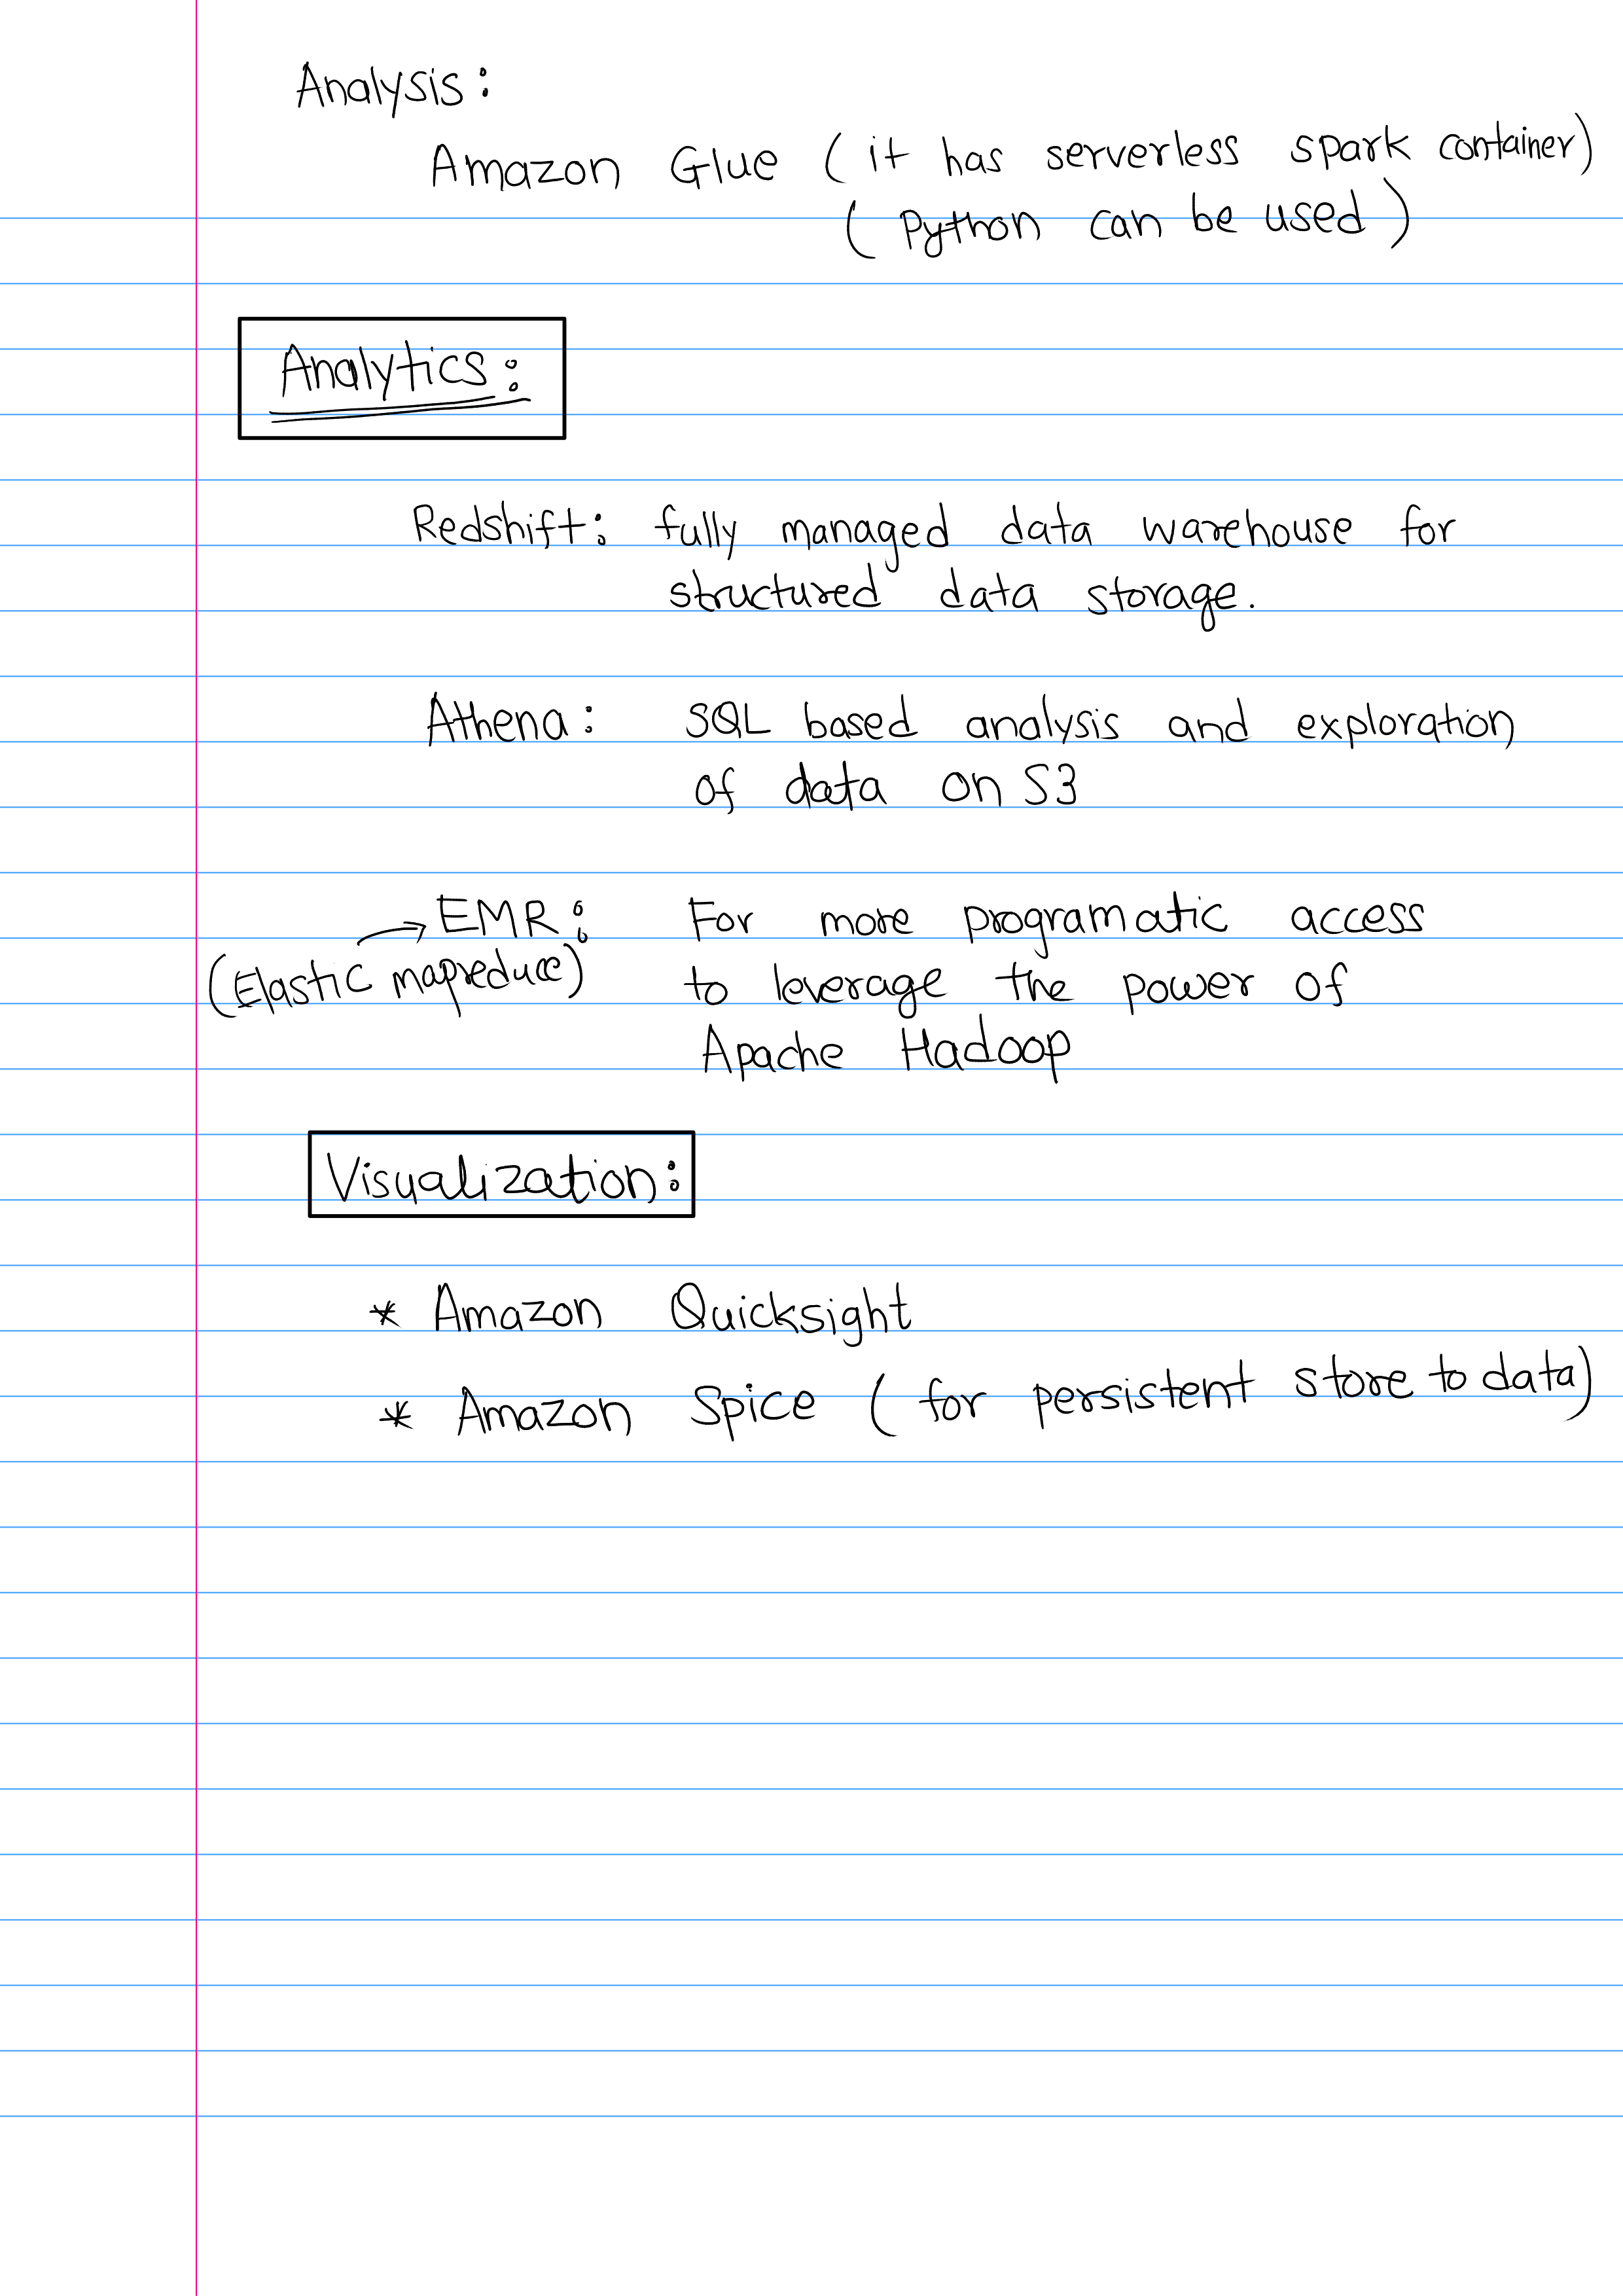 Analysis:
Amazon Glue (it has serverless spark container)
(Python can be used)
Analytics:
Redshift: fully managed data warehouse for
structured data storage.
Athena: SQL based analysis and exploration
of data on S3
EMR: For more programatic access
(Elastic mapreduce) to leverage the power of
Apache Hadoop
Visualization:
* Amazon Quicksight
* Amazon Spice (for persistent store to data)